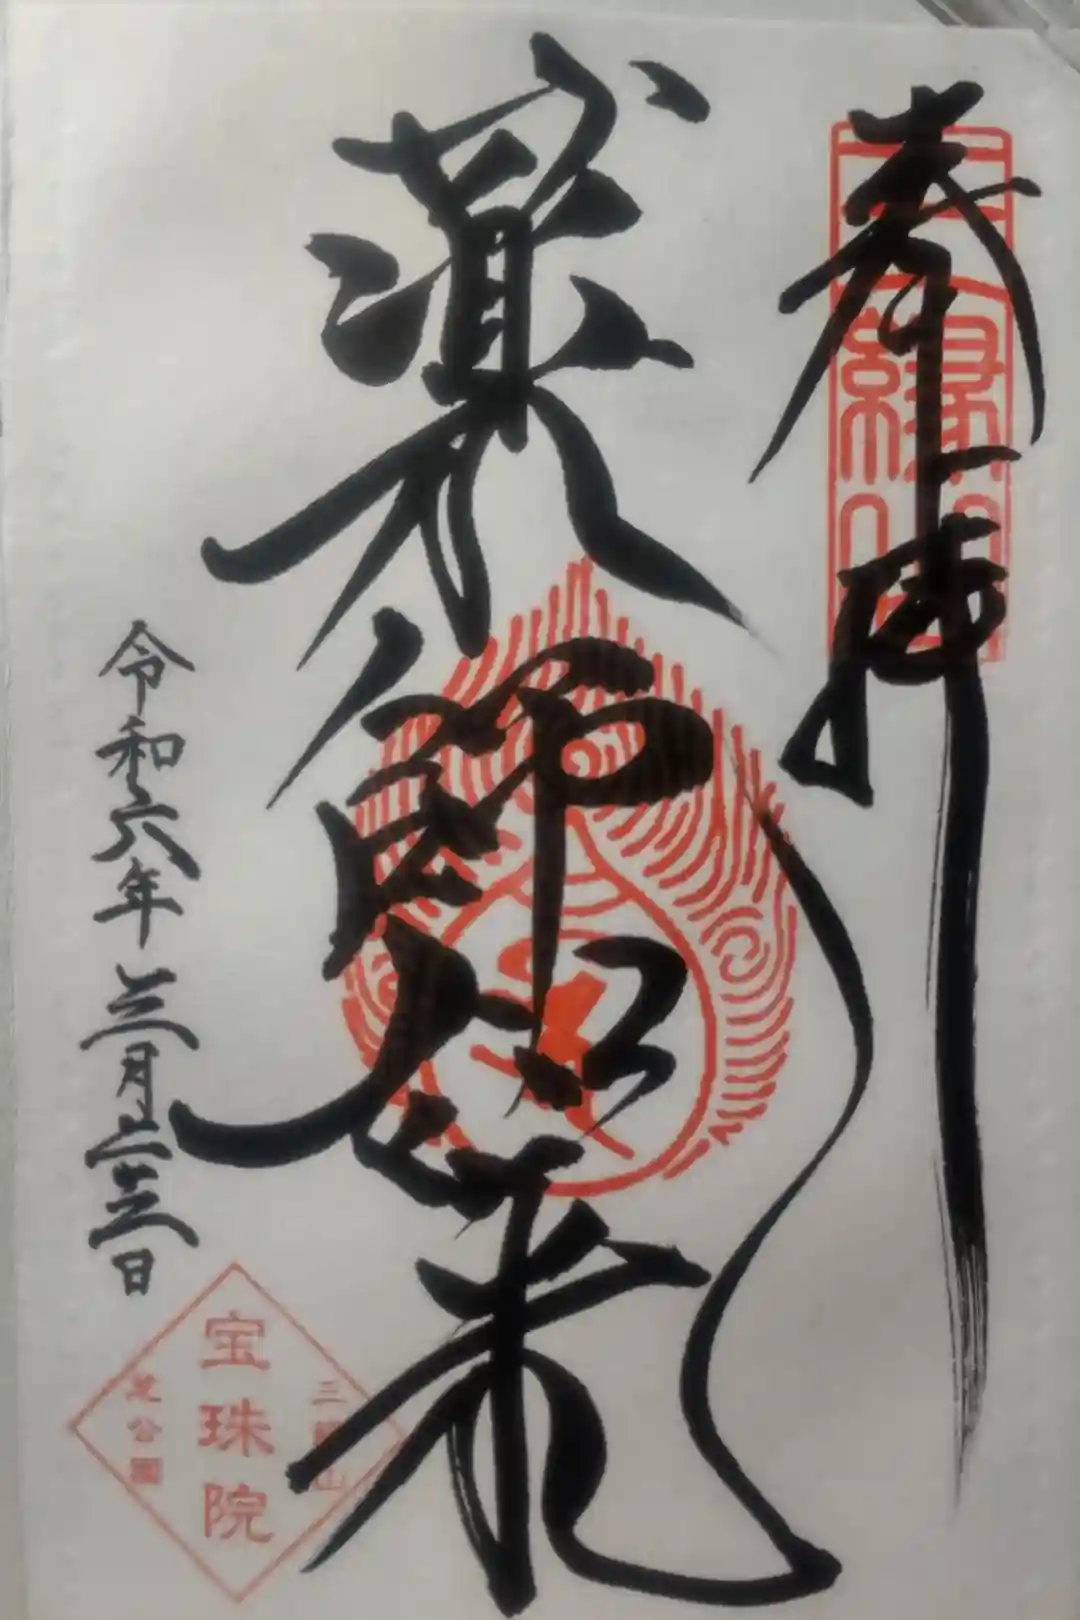 奉拝
薬師如来
令和六年三月二十三日
三縁山
宝珠院
芝公園